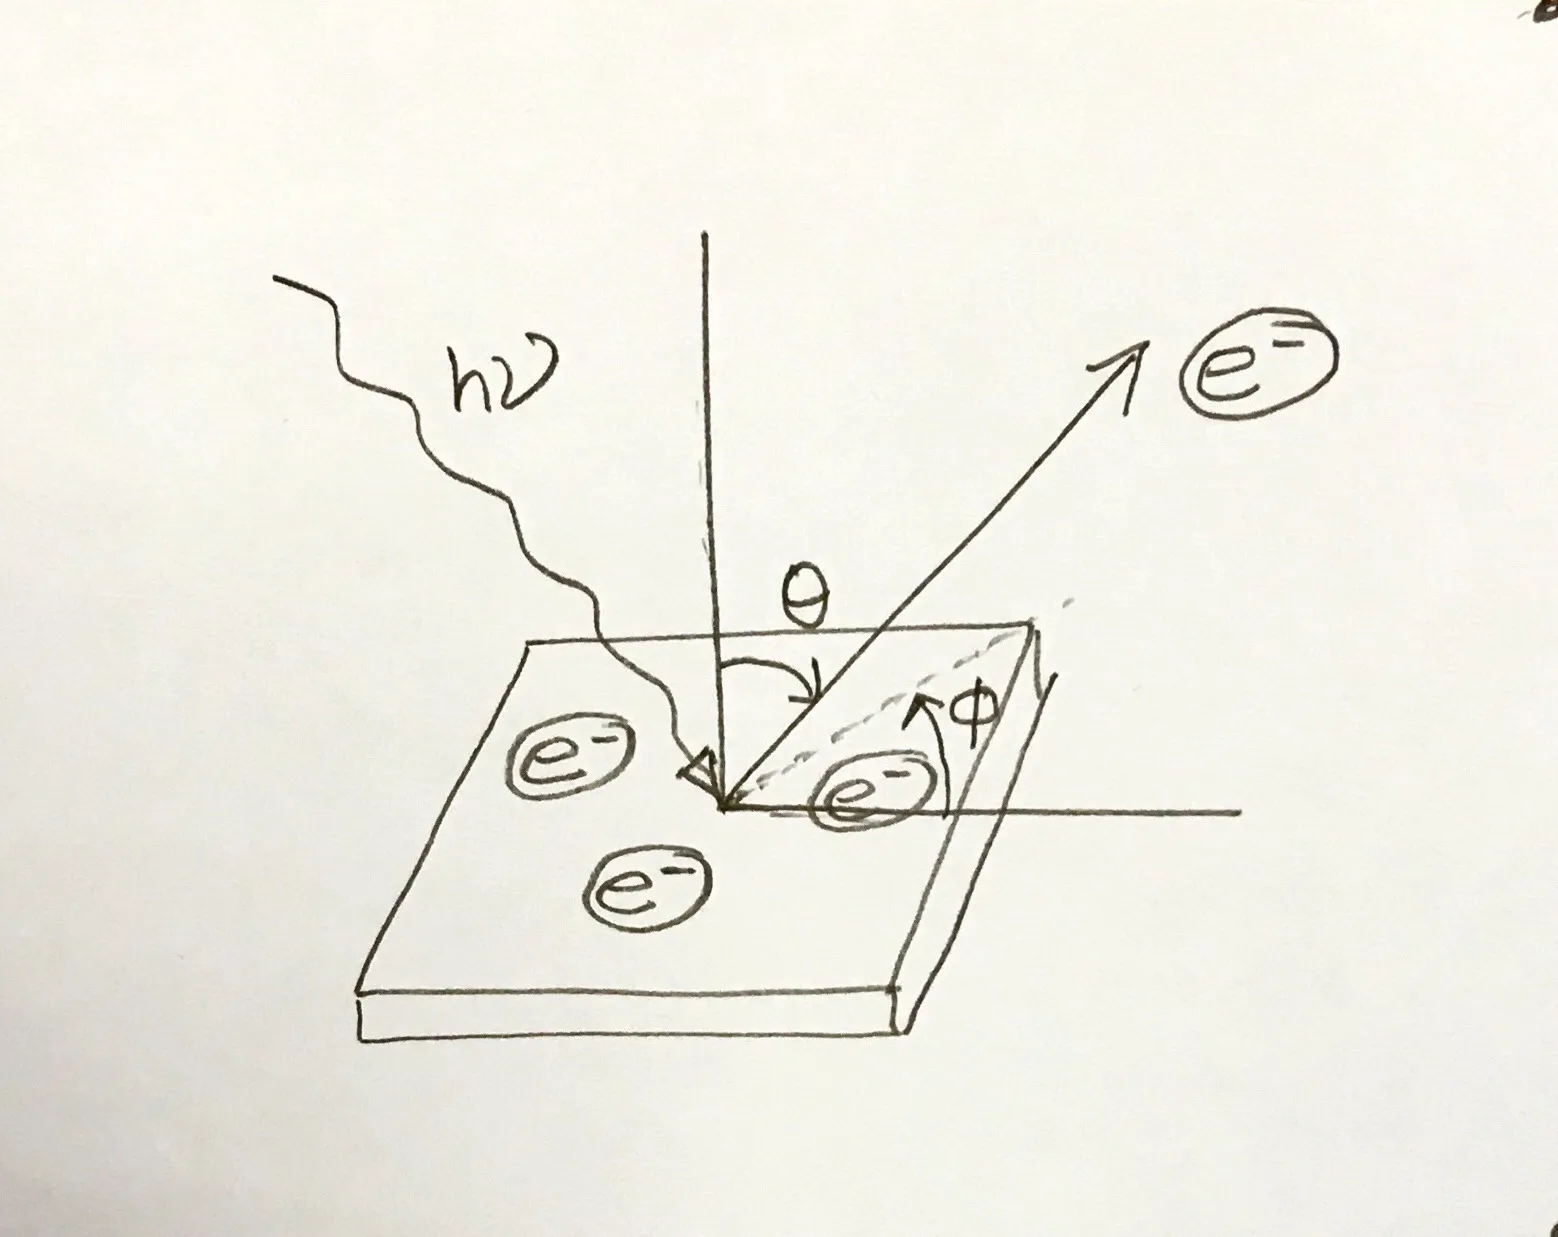 hν
e⁻
θ
ϕ
e⁻
e⁻
e⁻